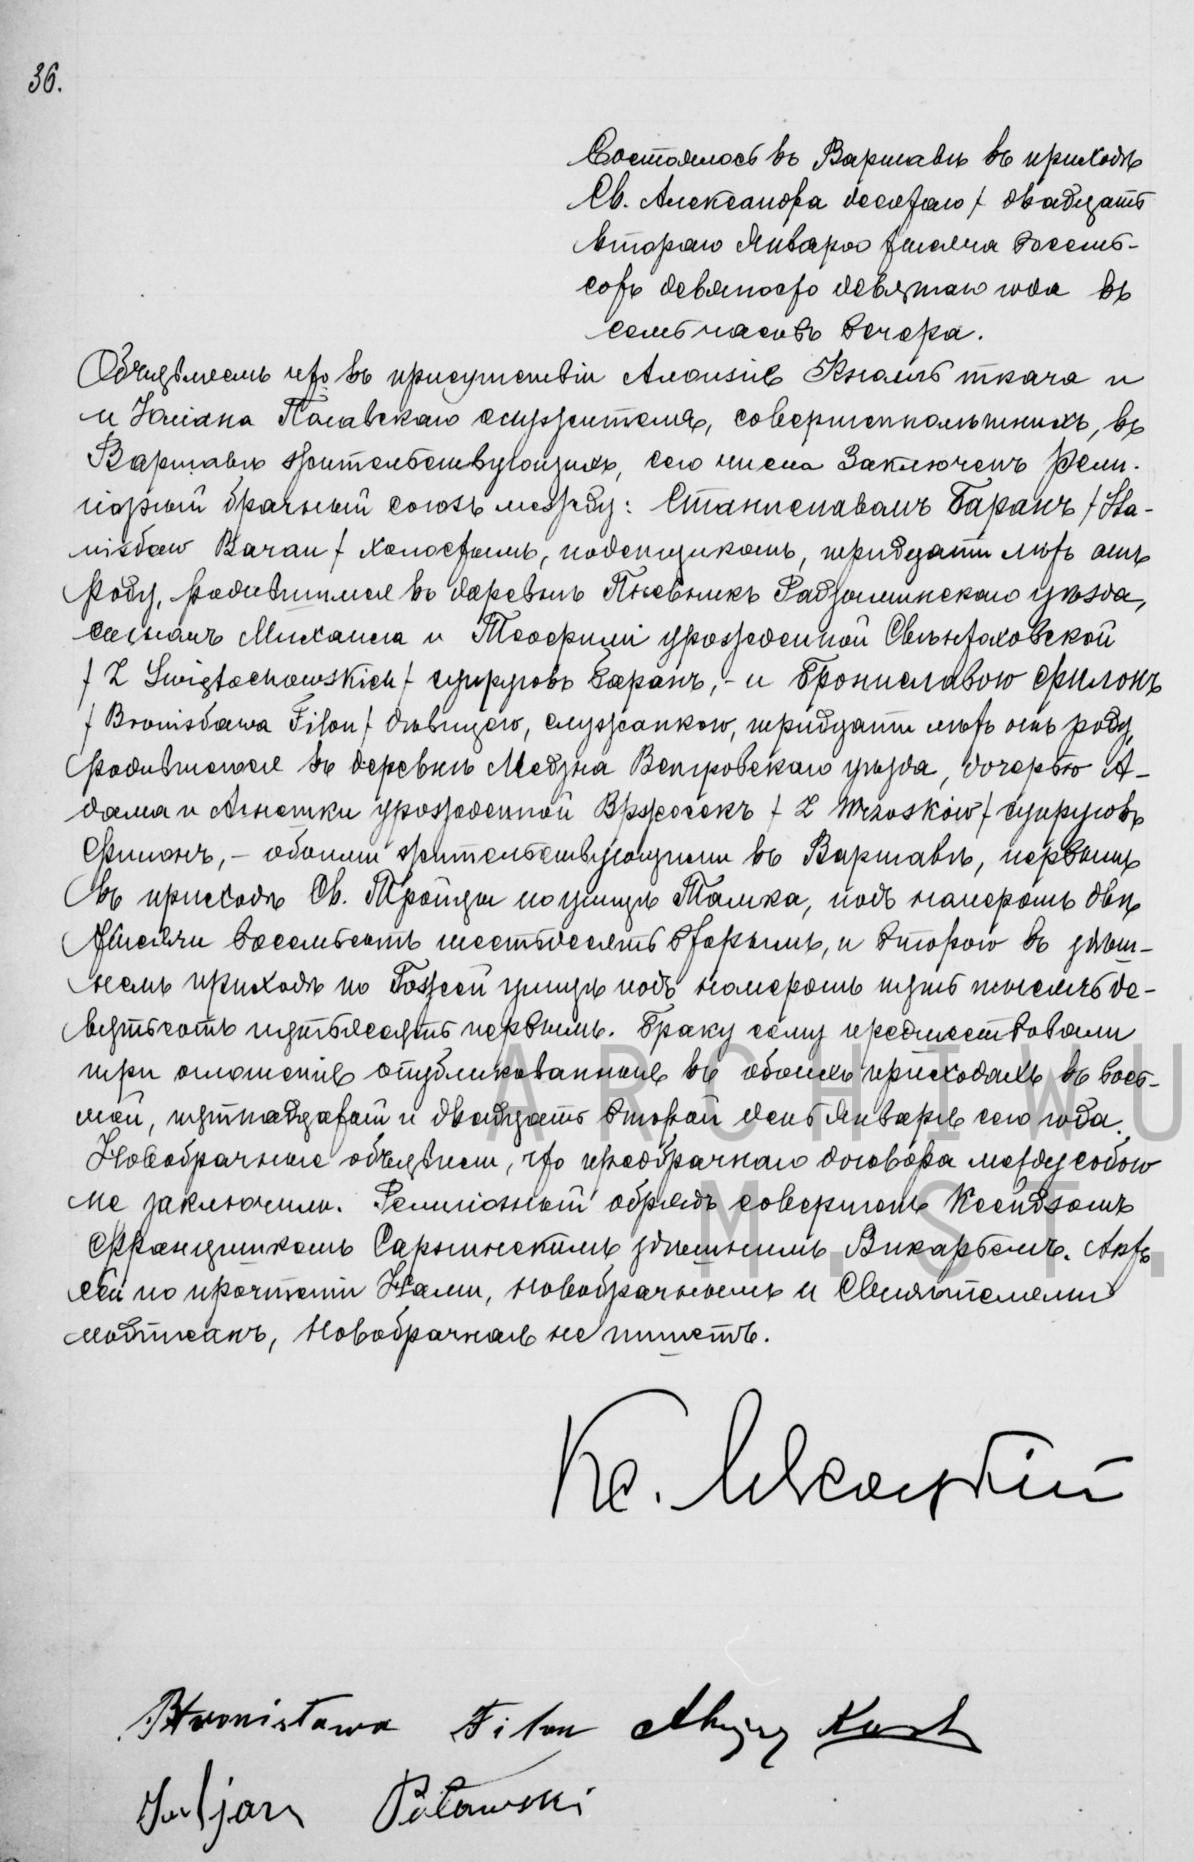 36.
Состоялось въ Варшавѣ въ приходѣ
Св. Александра десятаго / двадцать
втораго Января тысяча восемь-
сотъ девяносто девятаго года въ
семь часовъ вечера.
Объявляемъ что въ присутствіи Алоизія ткача и
и Юліана Полавскаго служителя, совершеннолѣтнихъ, въ
Варшавѣ жительствующихъ, сего числа заключенъ рели-
гіозный брачный союзъ между: Станиславомъ Баранъ / Sta-
nisław Baran / холостымъ, поденщикомъ, тридцати лѣтъ отъ
роду, родившимся въ деревнѣ Пневникъ Радзыминскаго уѣзда,
сыномъ Михаила и Теофили урожденной Свѣнтоховской
/ Z Swiętochowskich / супруговъ Баранъ, - и Брониславою Филонъ
/ Bronisława Filon / дѣвицею, служанкою, тридцати лѣтъ отъ роду,
родившеюся въ деревнѣ Медзна Венгровскаго уѣзда, дочерью А-
дама и Агнешки урожденной Вржосекъ / Z Wrzosków / супруговъ
Филонъ, - обоими жительствующими въ Варшавѣ, первымъ
въ приходѣ Св. Тройцы по улицѣ Тамка, подъ номеромъ двѣ
тысячи восемьсотъ шестьдесятъ вторымъ, и второю въ здѣш-
немъ приходѣ по Гожей улицѣ подъ номеромъ пять тысячъ де-
вятьсотъ пятьдесятъ первымъ. Браку сему предшествовали
три оглашенія опубликованныя въ обоихъ приходахъ въ вось-
мой, пятнадцатый и двадцать второй день Января сего года.
Новобрачные объявили, что предбрачнаго договора между собою
не заключили. Религіозный обрядъ совершенъ Ксендзомъ
Францишкомъ здѣшнимъ Викаріемъ. Актъ
сей по прочтеніи Нами, новобрачнымъ и Свидѣтелями
подписанъ, Новобрачная не пишетъ.
Кс.
Bronisława Filon
Juljan Poławski
ARCHIWU
M.ST.